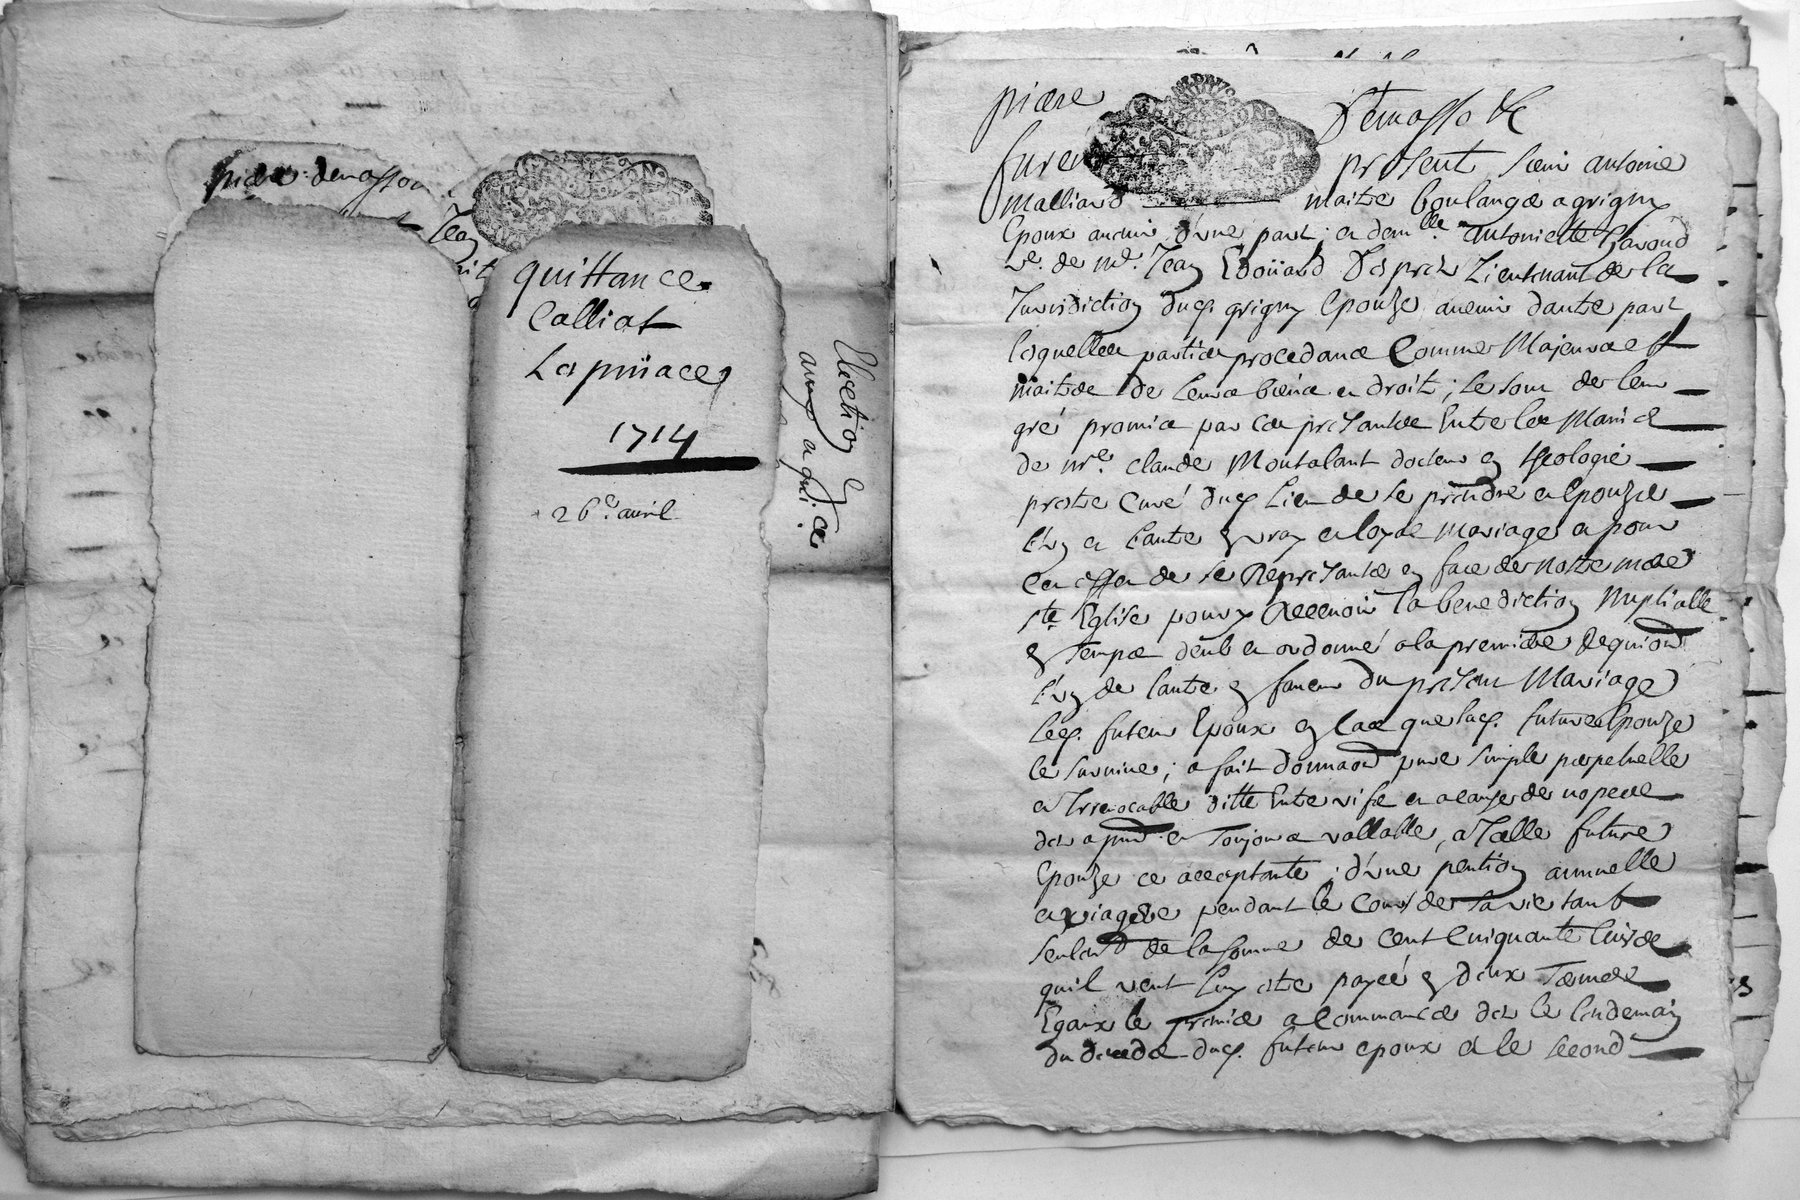 piere demasson
Jean
quittance
Calliat
Lapriiace
1714
26e. avril
Election
amy a qui ce
piere Demasso de
furent present sieur antoine
Malliard maitre boulangé a grigny
Epoux auenir d'vne part, et demlle. antoniette
ve. de me. Jean Edoüard Desprez Lieutenant de la
Jurisdiction dud. grigny Epouze auenir dautre part
lesquelles parties procedans Comme Majeurs et
maitres de leurs biens et droits; se sont de leur
gré promis par ces presantes Entre les Mains
de mre. claude Montalant docteur en theologie
prestre Curé dud. Lieu de se prendre et Epouzer
l'un et l'autre en vray et loyal Mariage et pour
cet effet de se Representer en face de Nostre mere
ste. Eglise pour y Receuoir la benediction Nuptialle
en temps deub et ordonné a la premiere Requisition
l'un de lautre. en faueur du present Mariage
led. futeur Epoux en cas que lad. future Epouze
le survive; a fait donnaon pure simple perpetuelle
et Irreuocable ditte Entre vifs et a cause de nopces
des a pnt et Toujours vallable, a Icelle future
Epouze ce acceptante; d'vne pention annuelle
et viagere pendant le Cours de sa vie tant
seulemt de la somme de cent Cinquante liures
qu'il veut luy estre payée en deux Termes
Egaux le premier a Commencer des le lendemain
du deceds dud. futeur epoux et le second